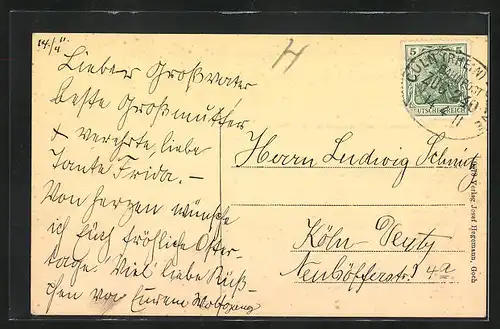 14./4. 11.
Lieber Großvater
beste Großmutter
+ verehrte, liebe
Tante Frida. –
Von Herzen wünsche
ich Euch fröhliche Oster-
tage. Viel liebe Küß-
chen von Eurem Wolfgang
H
5 5
DEUTSCHES REICH
CÖLN (RHEIN)
Herrn Ludwig
Köln Deutz
Neuhöfferstr. 4a
Verlag Josef Hegemann, Goch